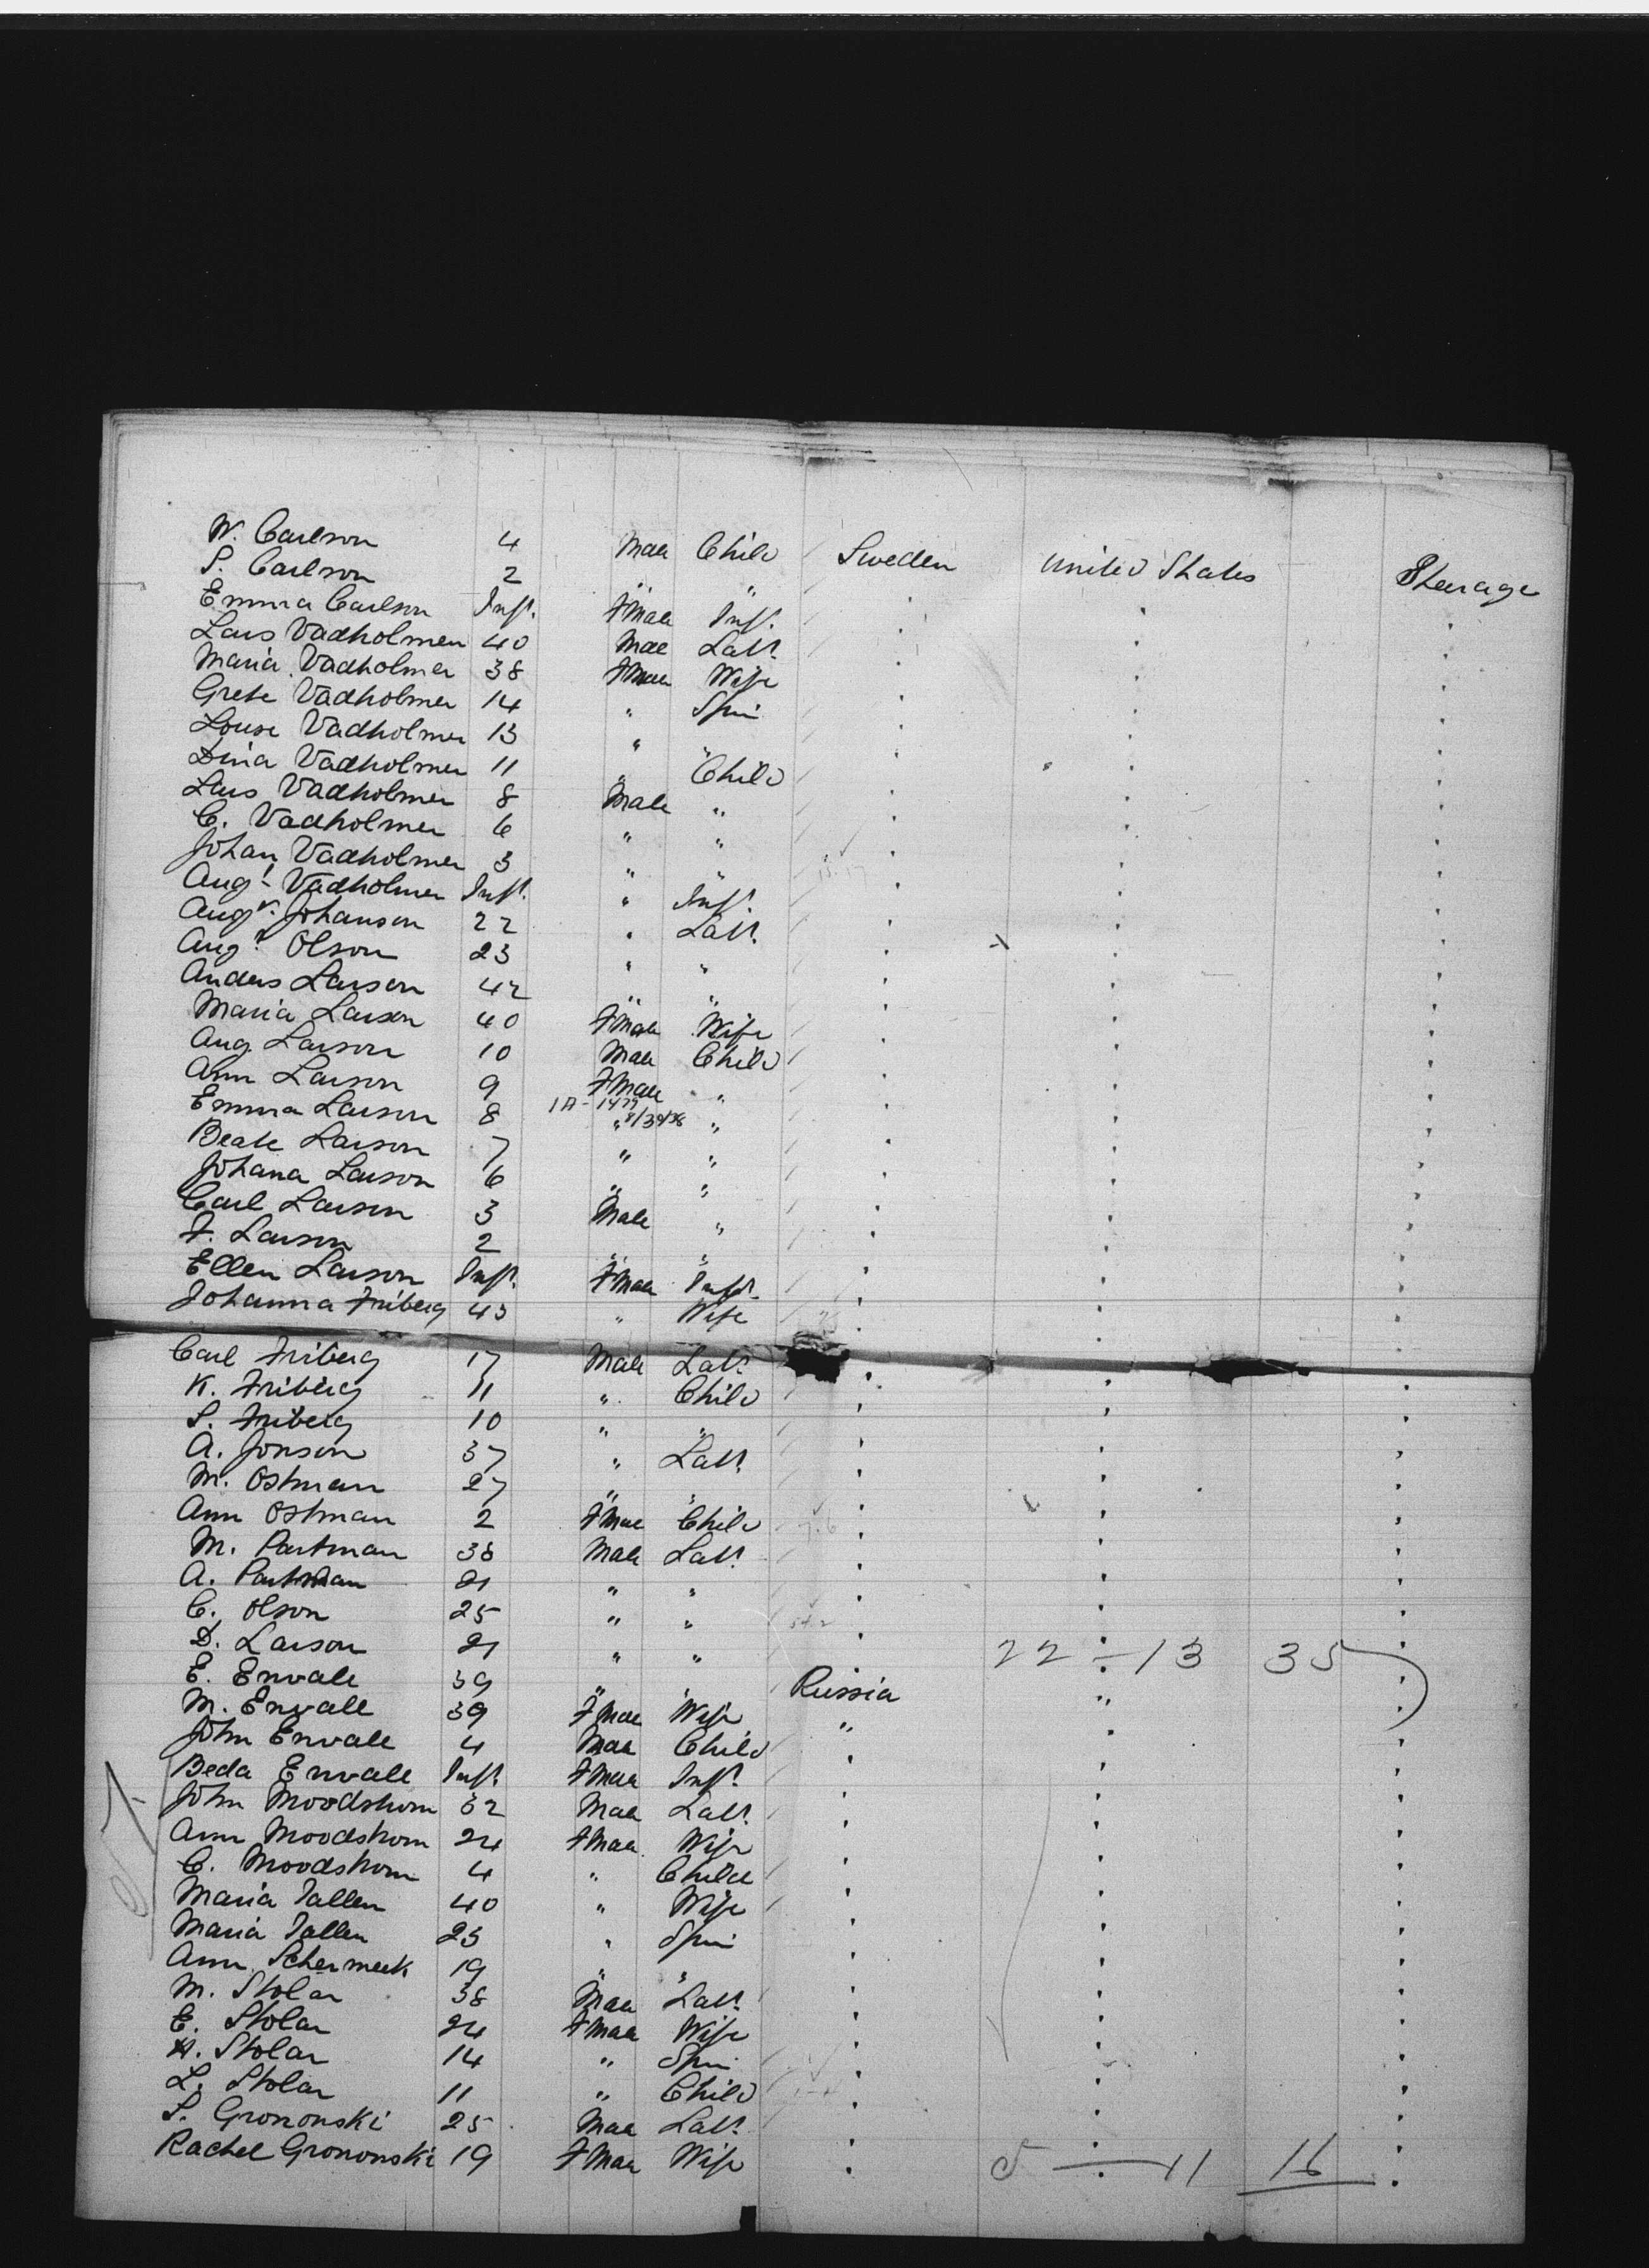 W. Carlson 4 Male Child Sweden United States Steerage
S. Carlson 2 " "
Emma Carlson Inft. FMale Inft.
Lars Vadholmer 40 Male Labr.
Maria Vadholmer 38 FMale Wife
Grete Vadholmer 14 " Spin
Louise Vadholmer 13 " "
Dina Vadholmer 11 " Child
Lars Vadholmer 8 Male "
C. Vadholmer 6 " "
Johan Vadholmer 3 " "
Augt. Vadholmer Inft. " Inft.
Augt. Johanson 22 " Labr.
Augt. Olson 23 " "
Anders Larson 42 " "
Maria Larson 40 FMale Wife
Aug. Larson 10 Male Child
Ann Larson 9 FMale "
Emma Larson 8 1A-1479 " "
Beate Larson 7 " "
Johana Larson 6 " "
Carl Larson 3 Male "
F. Larson 2 " "
Ellen Larson Inft. FMale Inft.
Johanna Friberg 43 " Wife
Carl Friberg 17 Male Labr.
K. Friberg 11 " Child
S. Friberg 10 " "
A. Jonson 37 " Labr.
M. Ostman 27 " "
Ann Ostman 2 FMale Child
M. Partman 38 Male Labr.
A. Partman 21 " "
C. Olson 25 " "
D. Larson 21 " " 22 - 13 35
E. Envall 39 " " Russia "
M. Envall 39 FMale Wife "
John Envall 4 Male Child
Beda Envall Inft. FMale Inft.
John Moodstrom 32 Male Labr.
Ann Moodstrom 24 FMale Wife
C. Moodstrom 4 " Child
Maria Tallen 40 " Wife
Maria Tallen 23 " Spin
Ann Schermeek 19 " "
M. Stolar 38 Male Labr.
E. Stolar 24 FMale Wife
H. Stolar 14 " Spin
L. Stolar 11 " Child
S. Grononski 25 Male Labr.
Rachel Grononski 19 FMale Wife 5 - 11 16